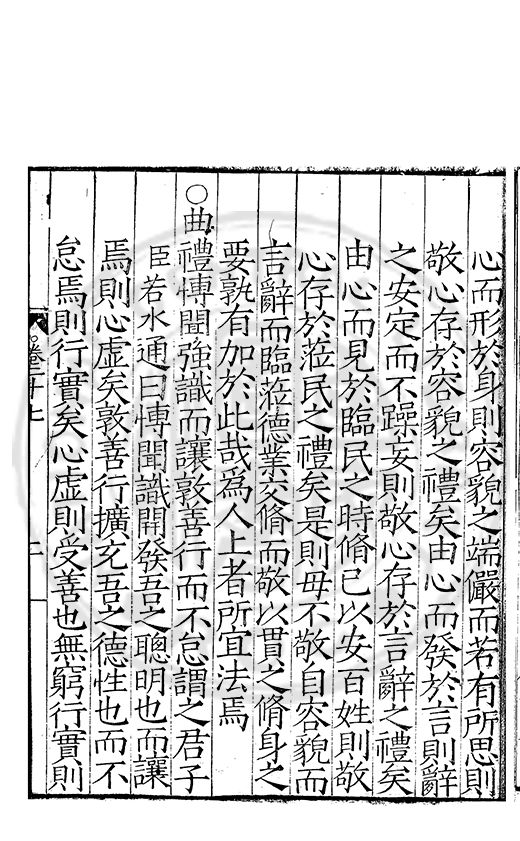 心而形於身則容貌之端儼而若有所思則
敬心存於容貌之禮矣由心而發於言則辭
之安定而不躁妄則敬心存於言辭之禮矣
由心而見於臨民之時脩已以安百姓則敬
心存於蒞民之禮矣是則毋不敬自容貌而
言辭而臨蒞德業交脩而敬以貫之脩身之
要孰有加於此哉為人上者所宜法焉
○曲禮博聞強識而讓敦善行而不怠謂之君子
臣若水通曰博聞識開發吾之聰明也而讓
焉則心虛矣敦善行擴充吾之德性也而不
怠焉則行實矣心虛則受善也無窮行實則